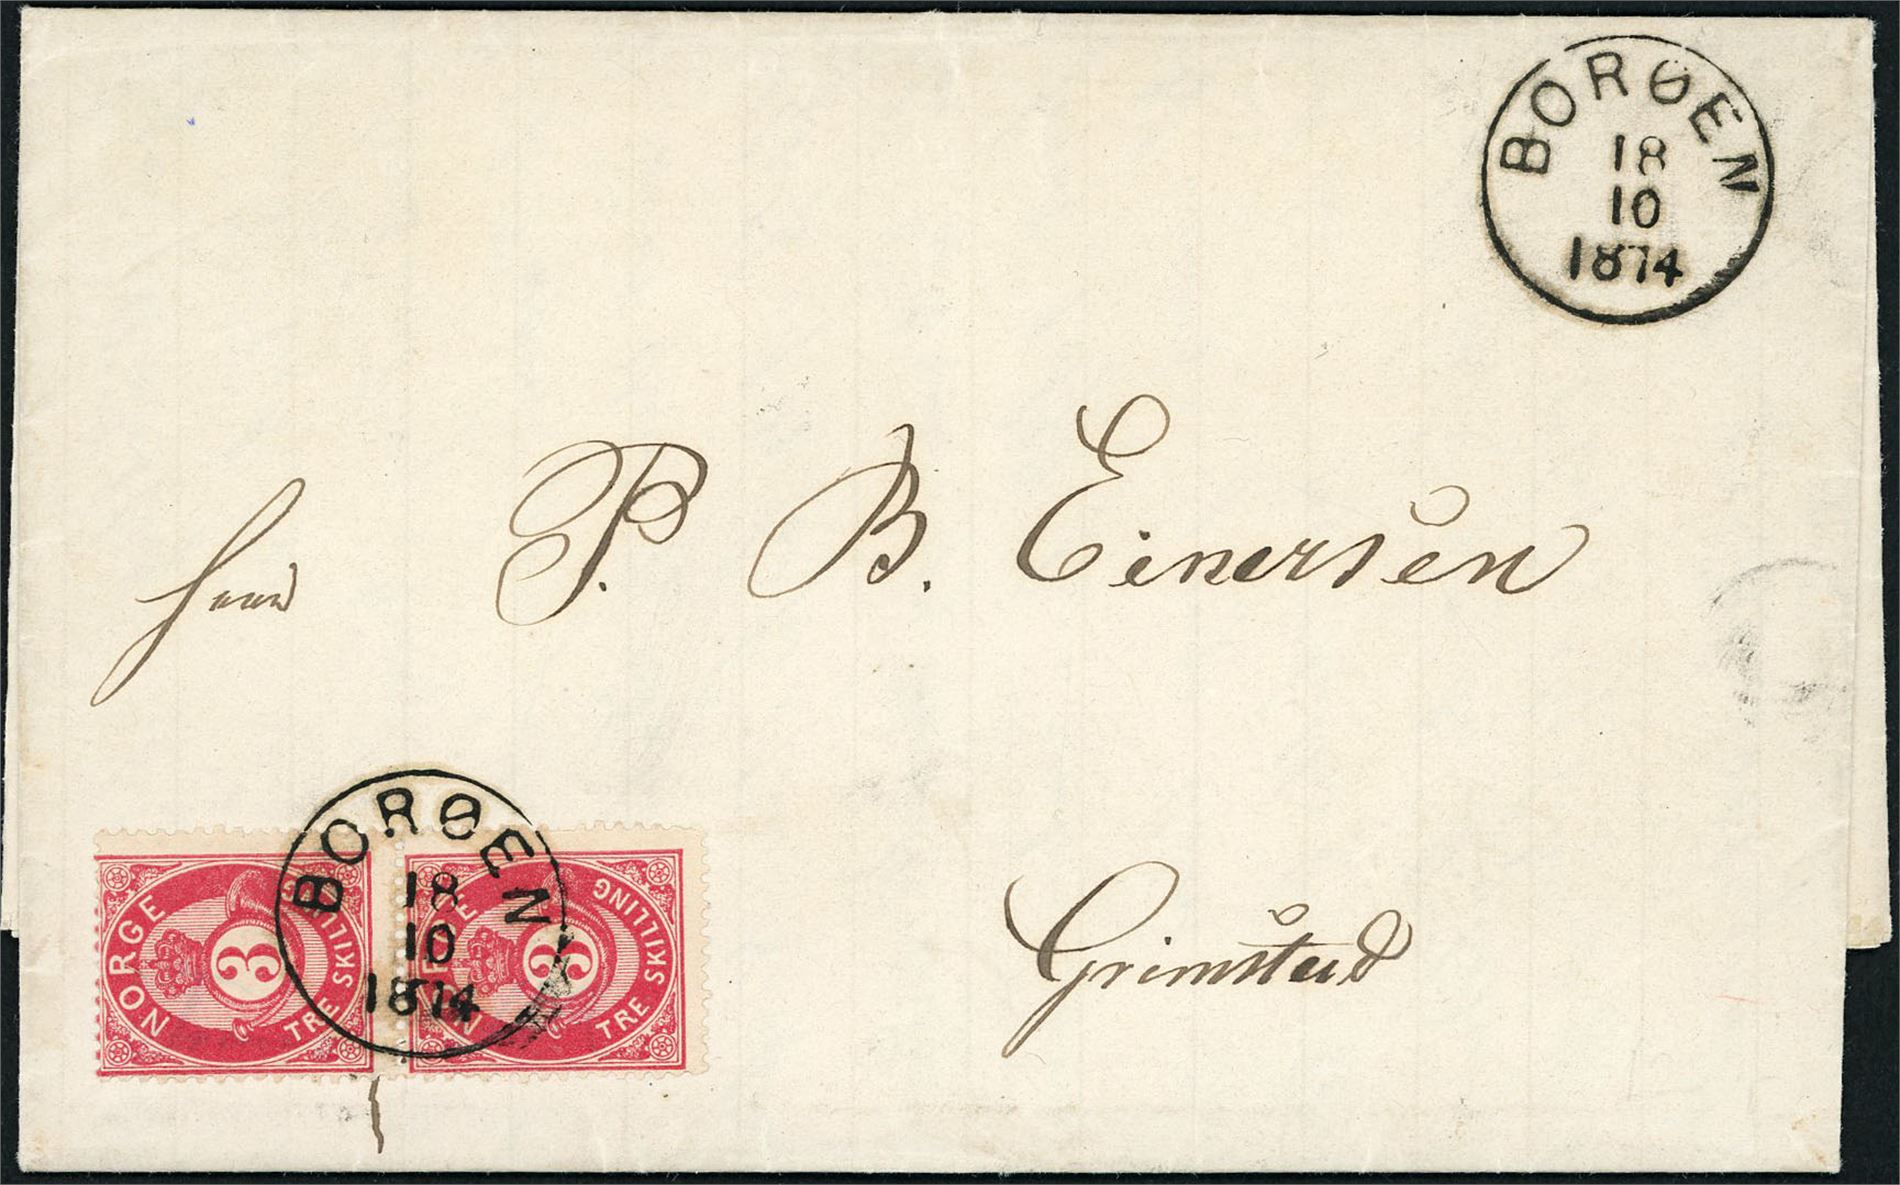 BORØEN
18
10
1874
Herr P. B. Einersen
Grimstad
BORØEN
18
10
1874
NORGE
3
TRE SKILLING
NORGE
3
TRE SKILLING